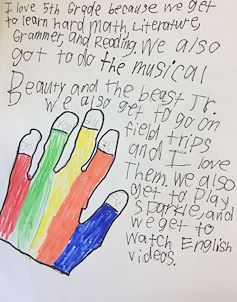 I love 5th Grade because we get
to learn hard math, Literature,
Grammer, and Reading. We also
got to do the musical
Beauty and the beast Jr.
We also get to go on
field trips
and I love
Them. We also
Get to Play
Sparkle, and
we get to
watch English
videos.